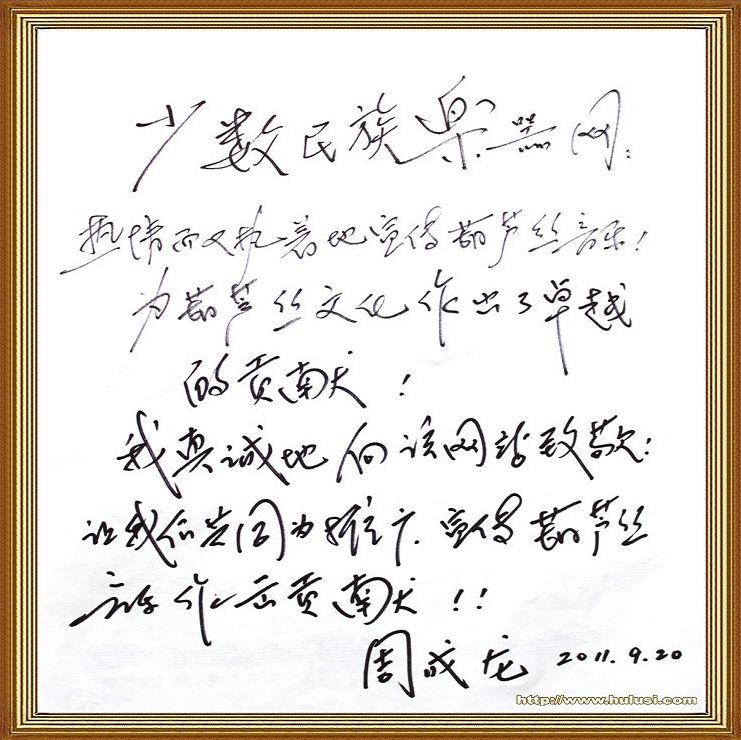 少数民族乐器网:
热情而又执着地宣传葫芦丝音乐!
为葫芦丝文化作出了卓越
的贡献!
我真诚地向该网站致敬:
让我们共同为推广.宣传葫芦丝
音乐作出贡献!!
周成龙 2011.9.20
http://www.hulusi.com